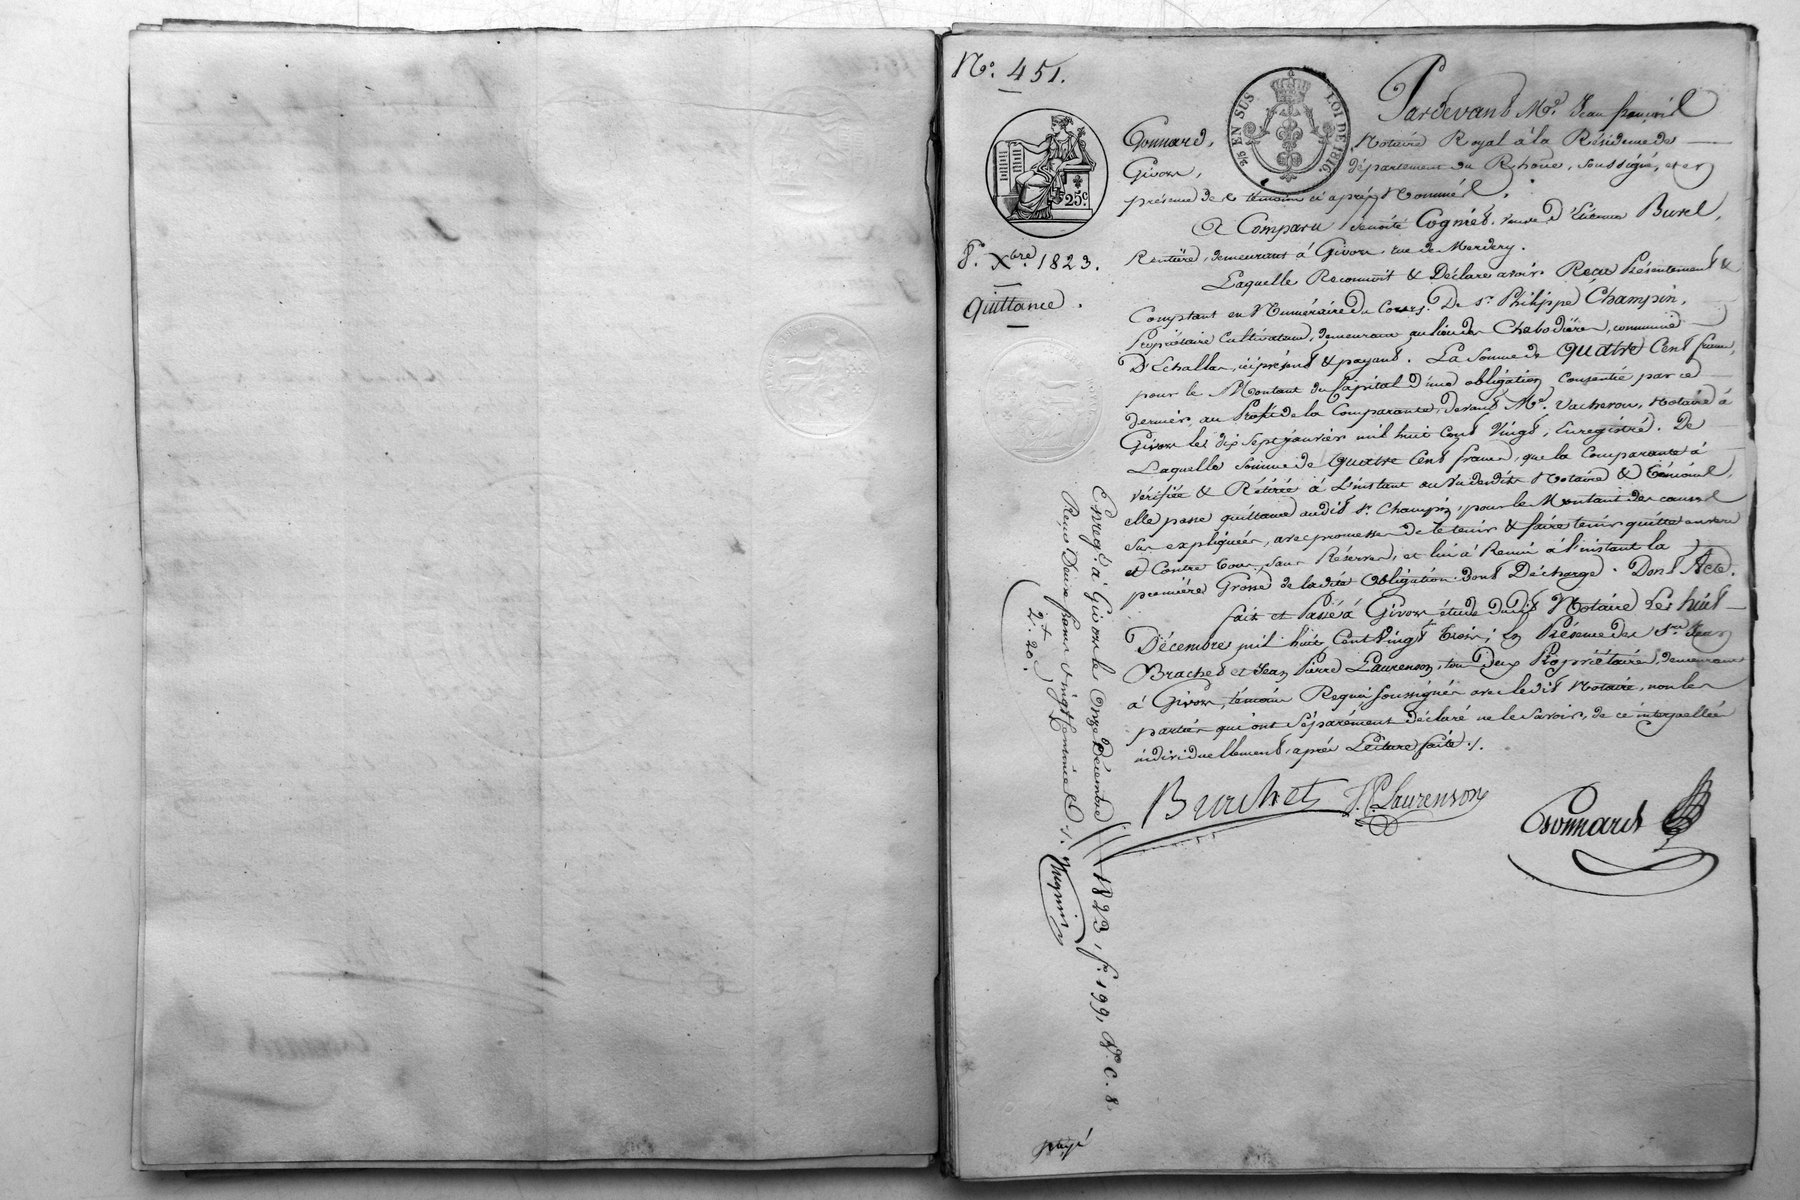 N.° 451.
Pardevant M.e Jean françois
Gonnard, Notaire Royal à la Résidence de
Givors, département du Rhône, soussigné, et en
présence des témoins ci après Nommés,
2/5 EN SUS LOI DE 1816.
25.c
8. Xbre. 1823.
Quittance.
A Comparu Benoite Cognies, veuve d'Etienne Burel,
Rentière, demeurant à Givors, rue de
Laquelle Reconnoit & Déclare avoir Reçu Présentement &
Comptant en Numéraire du Cours, De Sr. Philippe Champin,
Propriétaire Cultivateur, demeurant au lieu des Chabodières, commune
D'Echallas, ici présent & payant. La Somme de Quatre Cent francs,
pour le Montant du Capital d'une obligation consentie par ce
dernier, au Profit de la Comparante, devant Me. Vacheron, Notaire à
Givors le dix sept janvier mil huit cent vingt, Enregistré. De
Laquelle Somme de Quatre Cent francs, que la Comparante à
vérifiée & Retirée à L'instant au Vu desdits Notaire & Témoins,
elle passe quittance audit Sr. Champin, pour le Montant des causes
Sus expliquées, avec promesse de le tenir & faire tenir quitte envers
et Contre tous, sans Réserves, et lui à Remis à l'instant la
première Grosse de ladite Obligation. Dont Décharge. Dont Acte.
fait et Passé à Givors, étude dudit Notaire Les huit
Décembre mil huit Cent Vingt trois; En Présence des Srs. Jean
Brachet et Jean Pierre Laurenson, tous deux Propriétaires, demeurant
à Givors, témoins Requis soussignés avec ledit Notaire, non les
parties qui ont Séparément déclaré ne le savoir, de ce interpellées
individuellement, après Lecture faite./.
Brachet J.P. Laurenson
Gonnard
Enreg.é à Givors le Onze Décembre 1823, f.° 199, V.° C. 8.
Reçu Deux francs vingt centimes
2.f 20.